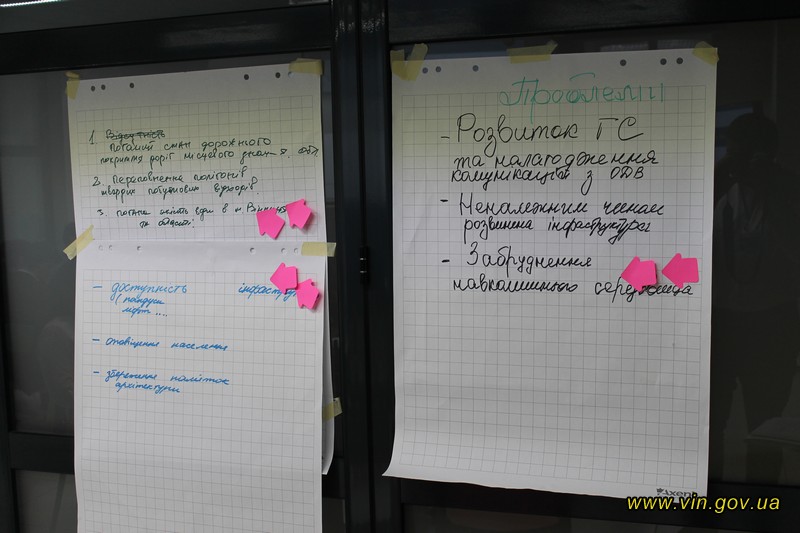 1. Відсутність
Поганий стан дорожного
покриття доріг місцевого
2. Переповнення полігонів
твердих побутових відходів.
3. погана якість води в м Вінниця
та області
- доступність інфраст
(пандуси
ліфт ....
- оповіщення населення
- збереження пам'яток
архітектури
Проблеми
- Розвиток ГС
та налагодження
комунікацій з ОДВ
- Неналежним чином
розвинена інфраструктура
- Забруднення
навколишнього середовища
www.vin.gov.ua